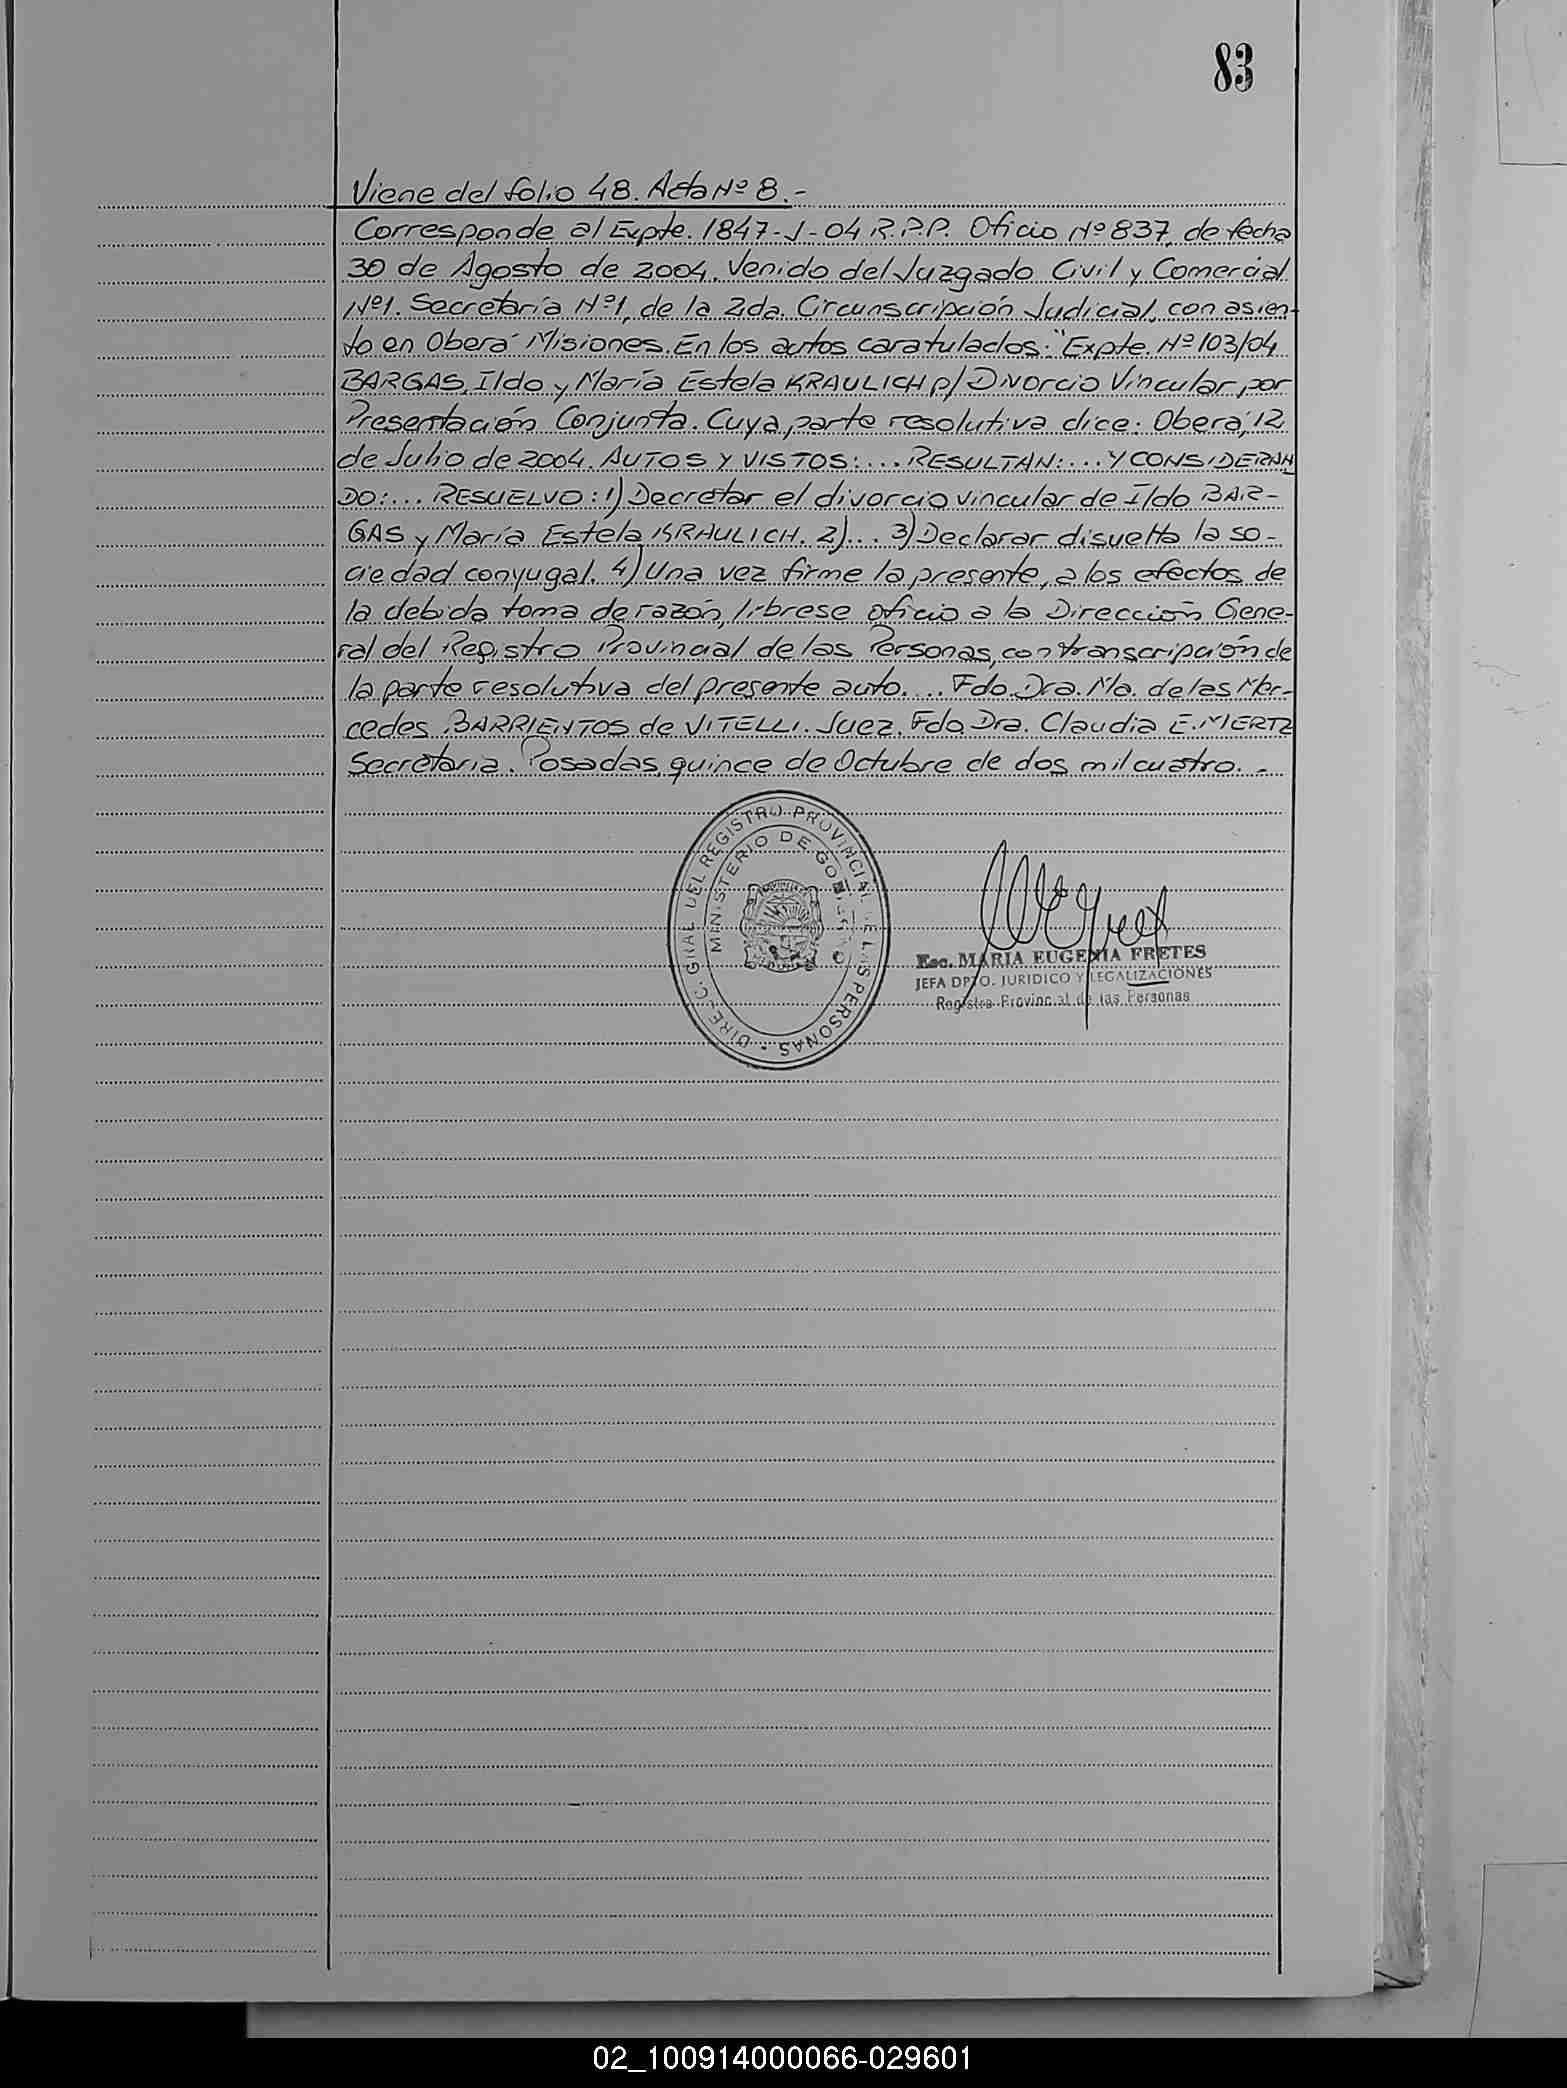 83
Viene del folio 48. Acta Nº 8.-
Corresponde al Expte. 1847-J-04 R.P.P. Oficio Nº 837, de fecha
30 de Agosto de 2004, Venido del Juzgado Civil y Comercial
Nº1. Secretaría Nº1, de la 2da. Circunscripción Judicial, con asien-
to en Oberá Misiones. En los autos caratulados: "Expte. Nº 103/04
BARGAS, Ildo y María Estela KRAULICH p/ Divorcio Vincular por
Presentación Conjunta. Cuya parte resolutiva dice: Oberá, 12
de Julio de 2004. AUTOS Y VISTOS:... RESULTAN:... Y CONSIDERAN
DO:... RESUELVO: 1) Decretar el divorcio vincular de Ildo BAR-
GAS y María Estela KRAULICH. 2)... 3) Declarar disuelta la so-
ciedad conyugal. 4) Una vez firme la presente, a los efectos de
la debida toma de razón, líbrese oficio a la Dirección Gene-
ral del Registro Provincial de las Personas, con transcripción de
la parte resolutiva del presente auto.... Fdo. Dra. Ma. de las Mer-
cedes BARRIENTOS de VITELLI. Juez. Fdo. Dra. Claudia E. MERTZ
Secretaria. Posadas, quince de Octubre de dos mil cuatro. -
DIREC. GRAL DEL REGISTRO PROVINCIAL DE LAS PERSONAS
MINISTERIO DE GOBIERNO
Esc. MARIA EUGENIA FRETES
JEFA DPTO. JURIDICO Y LEGALIZACIONES
Registro Provincial de las Personas
02_100914000066-029601